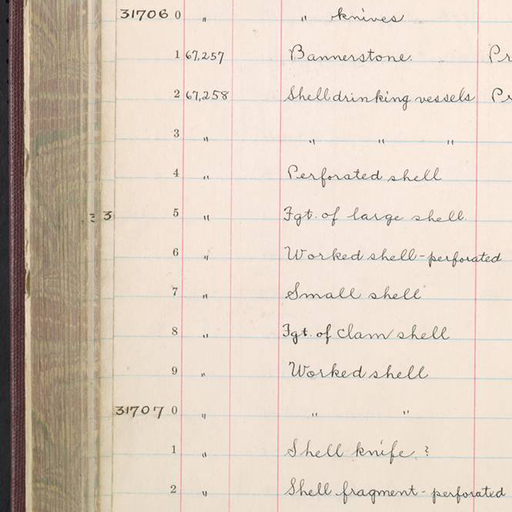 31706 0 " " knives
1 67,257 Bannerstone Pr
2 67,258 Shell drinking vessels Pr
3 " " " "
4 " Perforated shell
3 5 " Fgt. of large shell.
6 " Worked shell - perforated
7 " Small shell
8 " Fgt. of Clam shell
9 " Worked shell
31707 0 " " "
1 " Shell knife ?
2 " Shell fragment - perforated